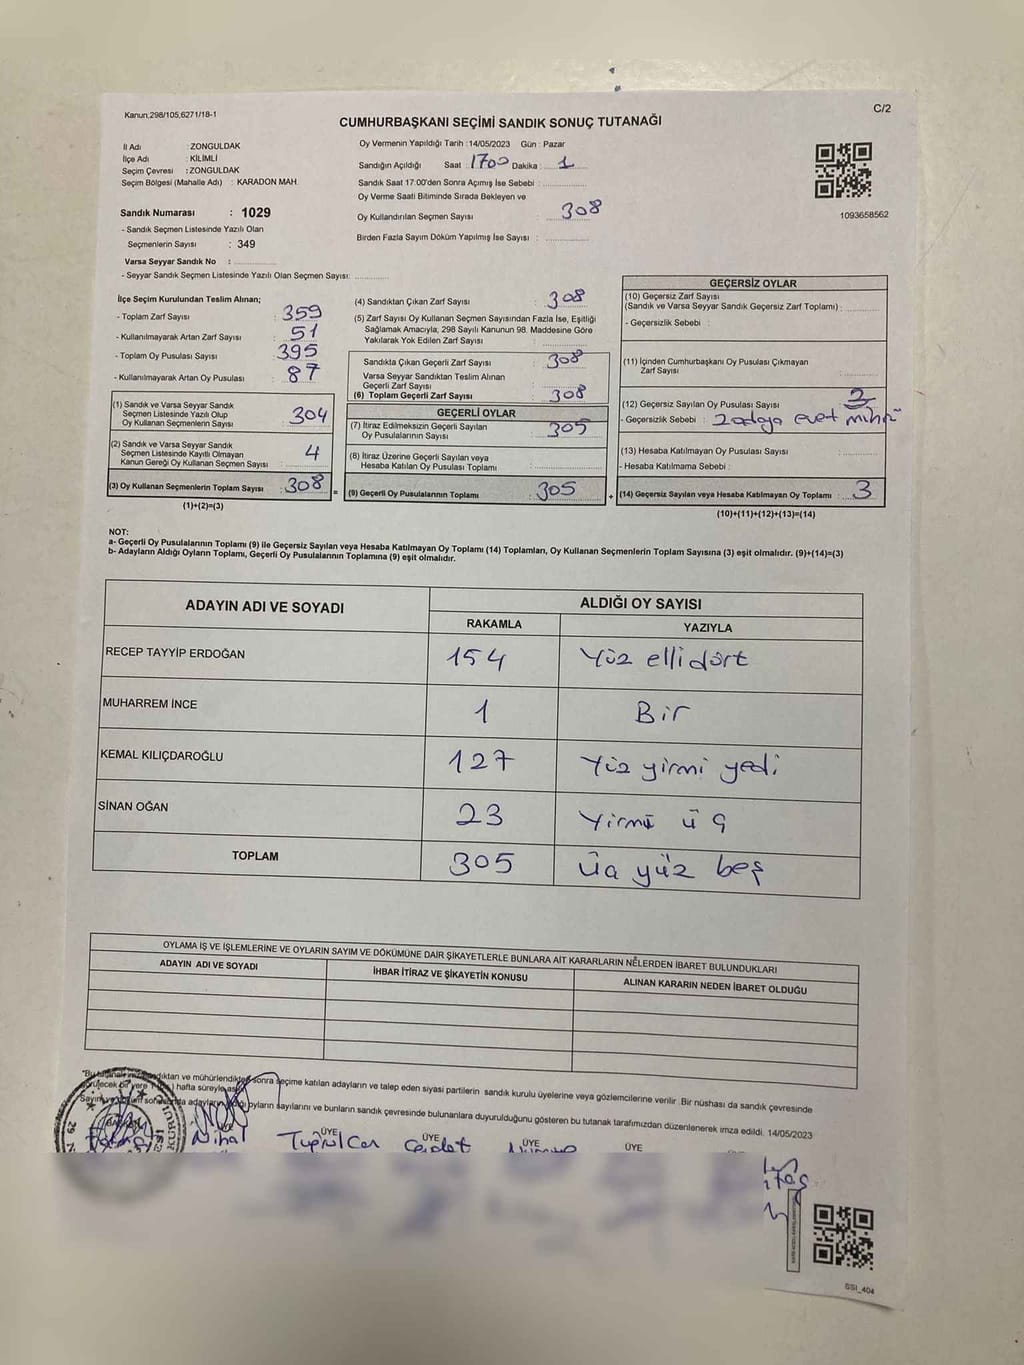 Kanun;298/105,6271/18-1
C/2
CUMHURBAŞKANI SEÇİMİ SANDIK SONUÇ TUTANAĞI
İl Adı : ZONGULDAK
İlçe Adı : KİLİMLİ
Seçim Çevresi : ZONGULDAK
Seçim Bölgesi (Mahalle Adı) : KARADON MAH.
Sandık Numarası : 1029
- Sandık Seçmen Listesinde Yazılı Olan
Seçmenlerin Sayısı : 349
Varsa Seyyar Sandık No :
- Seyyar Sandık Seçmen Listesinde Yazılı Olan Seçmen Sayısı:
Oy Vermenin Yapıldığı Tarih : 14/05/2023 Gün : Pazar
Sandığın Açıldığı Saat : 1700 Dakika : 1
Sandık Saat 17:00'den Sonra Açımış İse Sebebi :
Oy Verme Saati Bitiminde Sırada Bekleyen ve
Oy Kullandırılan Seçmen Sayısı : 308
Birden Fazla Sayım Döküm Yapılmış İse Sayısı :
1093658562
İlçe Seçim Kurulundan Teslim Alınan;
- Toplam Zarf Sayısı : 359
- Kullanılmayarak Artan Zarf Sayısı : 51
- Toplam Oy Pusulası Sayısı : 395
- Kullanılmayarak Artan Oy Pusulası : 87
(1) Sandık ve Varsa Seyyar Sandık
Seçmen Listesinde Yazılı Olup
Oy Kullanan Seçmenlerin Sayısı : 304
(2) Sandık ve Varsa Seyyar Sandık
Seçmen Listesinde Kayıtlı Olmayan
Kanun Gereği Oy Kullanan Seçmen Sayısı : 4
(3) Oy Kullanan Seçmenlerin Toplam Sayısı : 308
(1)+(2)=(3)
(4) Sandıktan Çıkan Zarf Sayısı : 308
(5) Zarf Sayısı Oy Kullanan Seçmen Sayısından Fazla İse, Eşitliği
Sağlamak Amacıyla, 298 Sayılı Kanunun 98. Maddesine Göre
Yakılarak Yok Edilen Zarf Sayısı :
Sandıkta Çıkan Geçerli Zarf Sayısı : 308
Varsa Seyyar Sandıktan Teslim Alınan
Geçerli Zarf Sayısı :
(6) Toplam Geçerli Zarf Sayısı : 308
GEÇERLİ OYLAR
(7) İtiraz Edilmeksizin Geçerli Sayılan
Oy Pusulalarının Sayısı : 305
(8) İtiraz Üzerine Geçerli Sayılan veya
Hesaba Katılan Oy Pusulası Toplamı :
= (9) Geçerli Oy Pusulalarının Toplamı : 305
GEÇERSİZ OYLAR
(10) Geçersiz Zarf Sayısı
(Sandık ve Varsa Seyyar Sandık Geçersiz Zarf Toplamı) :
- Geçersizlik Sebebi :
(11) İçinden Cumhurbaşkanı Oy Pusulası Çıkmayan
Zarf Sayısı :
(12) Geçersiz Sayılan Oy Pusulası Sayısı : 3
- Geçersizlik Sebebi : evet
(13) Hesaba Katılmayan Oy Pusulası Sayısı :
- Hesaba Katılmama Sebebi :
+ (14) Geçersiz Sayılan veya Hesaba Katılmayan Oy Toplamı : 3
(10)+(11)+(12)+(13)=(14)
NOT:
a- Geçerli Oy Pusulalarının Toplamı (9) ile Geçersiz Sayılan veya Hesaba Katılmayan Oy Toplamı (14) Toplamları, Oy Kullanan Seçmenlerin Toplam Sayısına (3) eşit olmalıdır. (9)+(14)=(3)
b- Adayların Aldığı Oyların Toplamı, Geçerli Oy Pusulalarının Toplamına (9) eşit olmalıdır.
ADAYIN ADI VE SOYADI ALDIĞI OY SAYISI
RAKAMLA YAZIYLA
RECEP TAYYİP ERDOĞAN 154 Yüz ellidört
MUHARREM İNCE 1 Bir
KEMAL KILIÇDAROĞLU 127 Yüz yirmi yedi
SİNAN OĞAN 23 Yirmi üç
TOPLAM 305 üç yüz beş
OYLAMA İŞ VE İŞLEMLERİNE VE OYLARIN SAYIM VE DÖKÜMÜNE DAİR ŞİKAYETLERLE BUNLARA AİT KARARLARIN NELERDEN İBARET BULUNDUKLARI
ADAYIN ADI VE SOYADI İHBAR İTİRAZ VE ŞİKAYETİN KONUSU ALINAN KARARIN NEDEN İBARET OLDUĞU
sonra seçime katılan adayların ve talep eden siyasi partilerin sandık kurulu üyelerine veya gözlemcilerine verilir .Bir nüshası da sandık çevresinde
hafta süreyle
oyların sayılarını ve bunların sandık çevresinde bulunanlara duyurulduğunu gösteren bu tutanak tarafımızdan düzenlenerek imza edildi. 14/05/2023
ÜYE ÜYE ÜYE
Nihal Cevdet
SSI_404